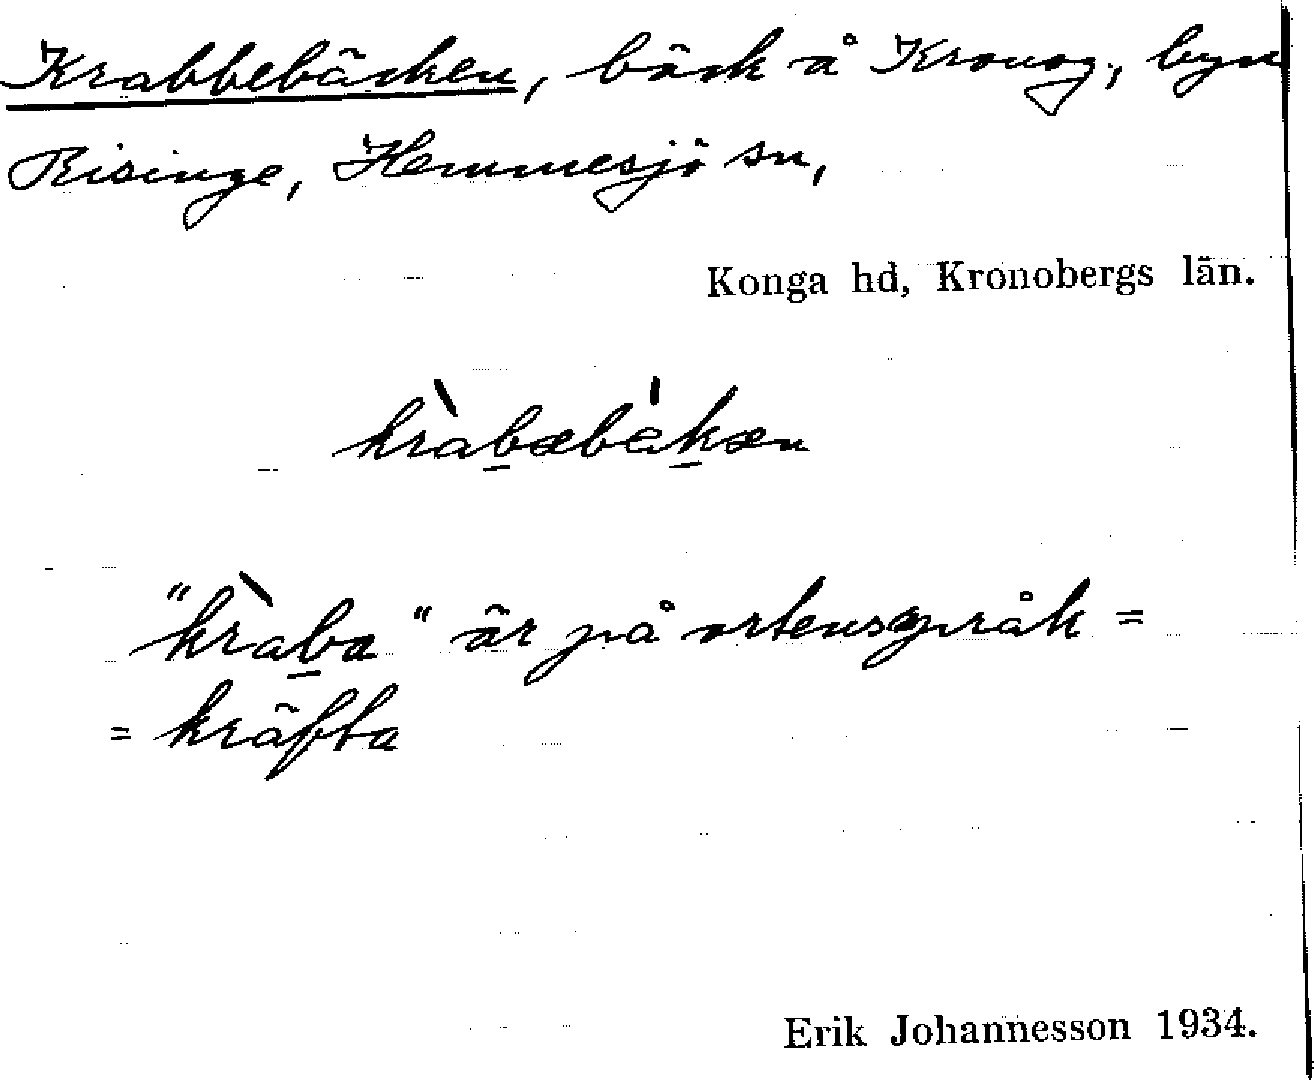 Krabbebäcken, bäck å Kronog., byn
Risinge, Hemmesjö sn,
Konga hd, Kronobergs län.
kràbæbákæn
"kràba" är på ortenspråk =
= kräfta
Erik Johannesson 1934.